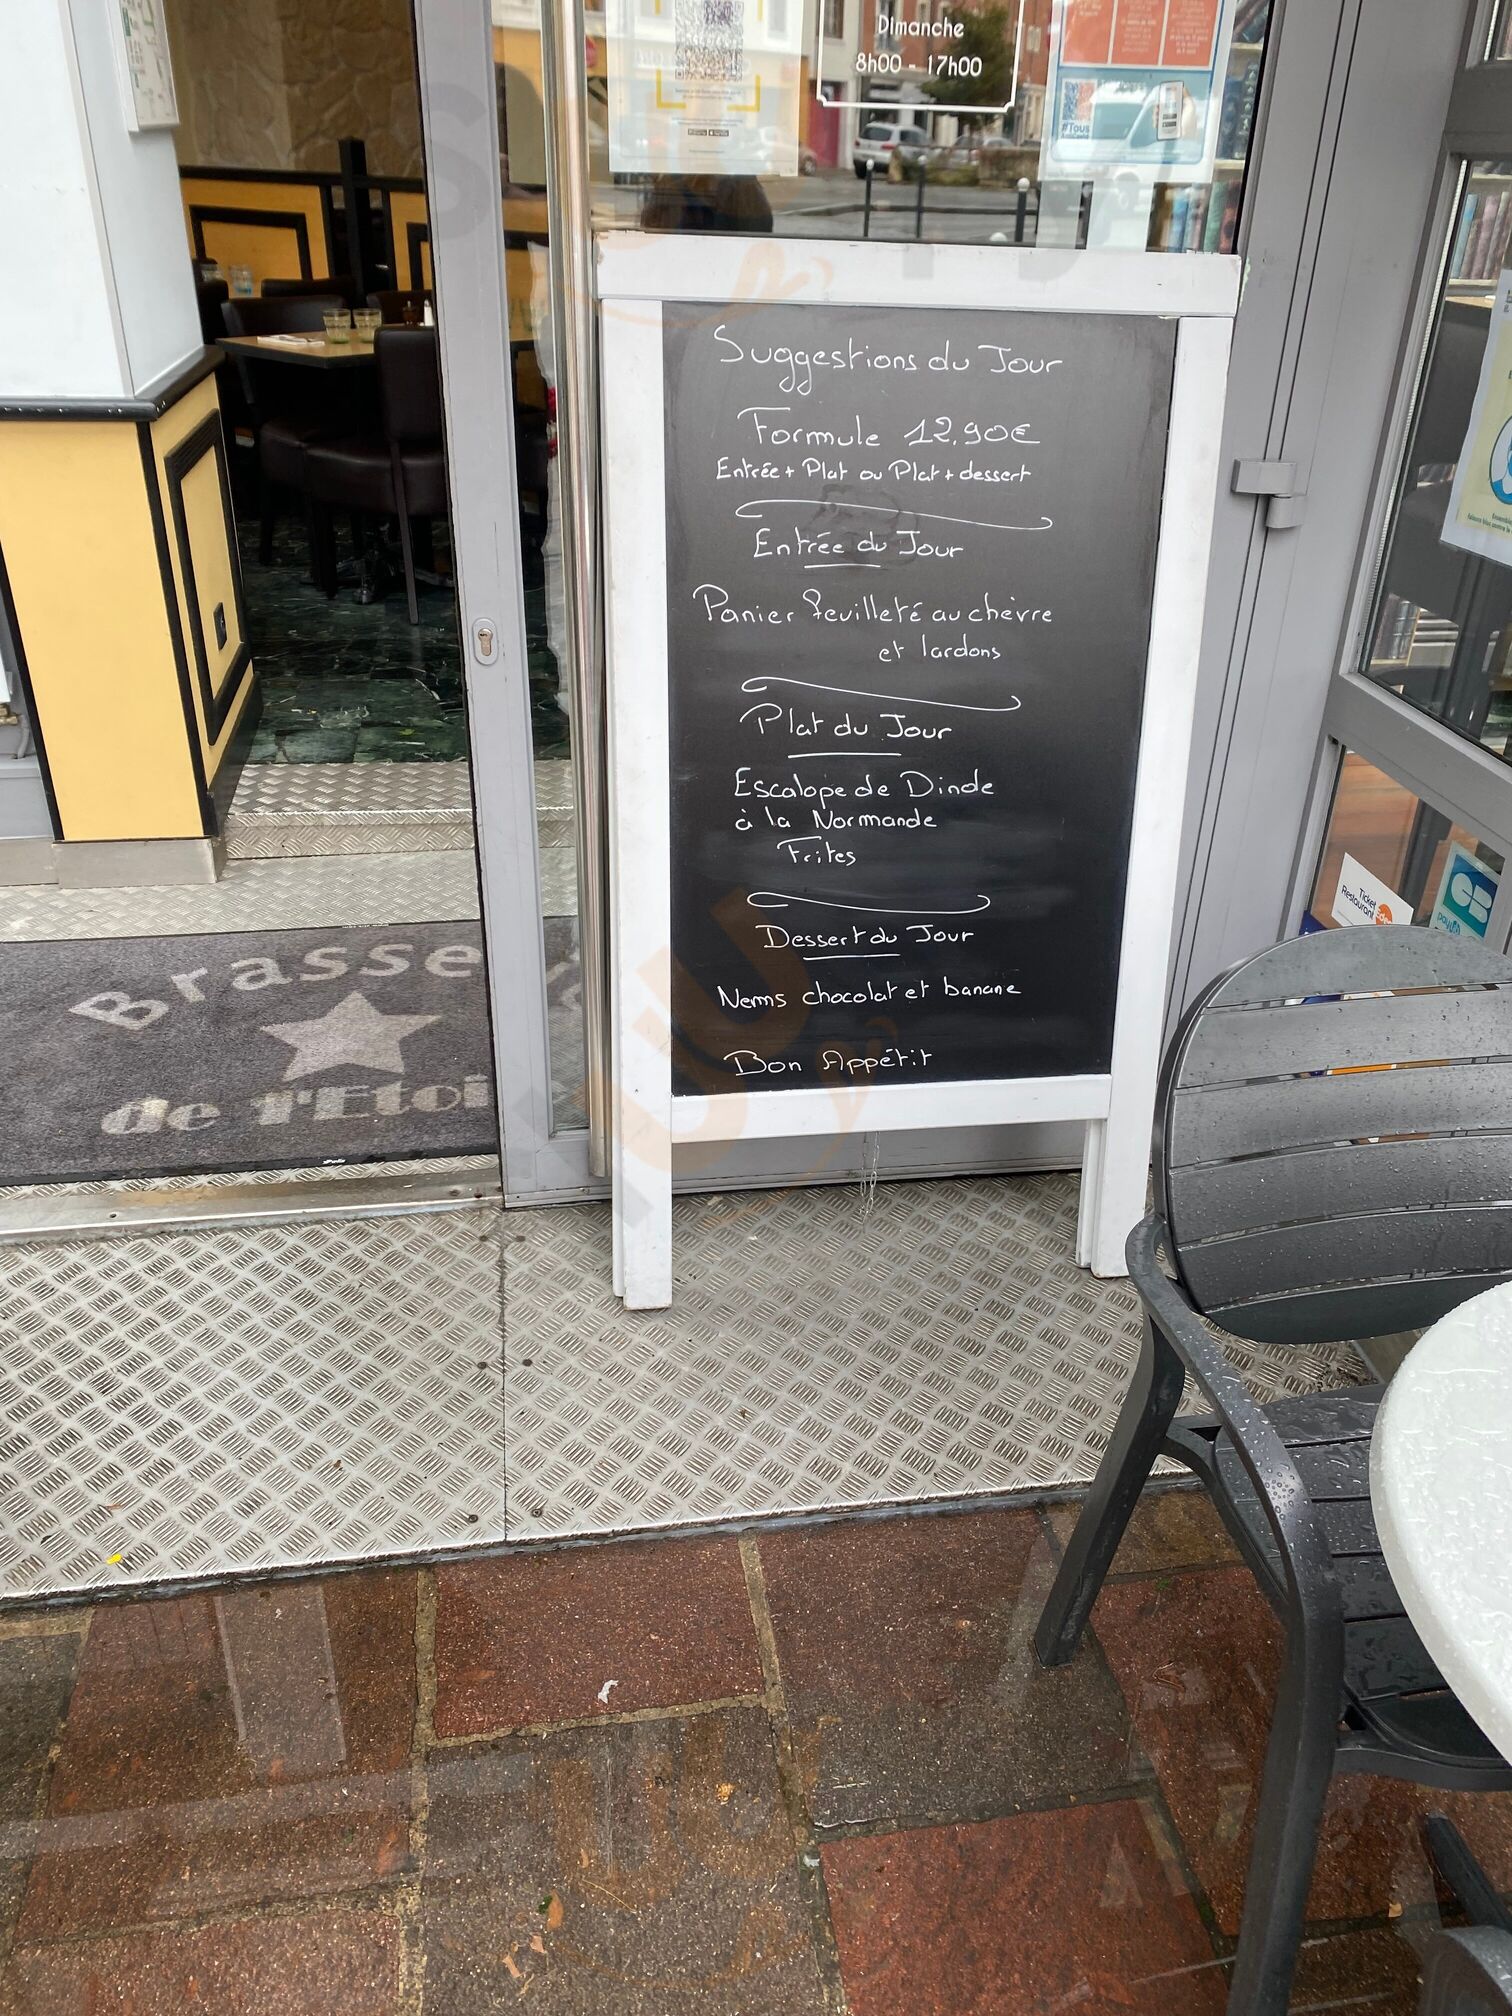 Dimanche
8h00 - 17h00
#Tous
Suggestions du Jour
Formule 12.90€
Entrée + Plat ou Plat + dessert
Entrée du Jour
Panier feuilleté au chèvre
et lardons
Plat du Jour
Escalope de Dinde
à la Normande
Frites
Dessert du Jour
Nems chocolat et banane
Bon Appétit
Ticket
Restaurant
CB
Brasse
de l'Etoi